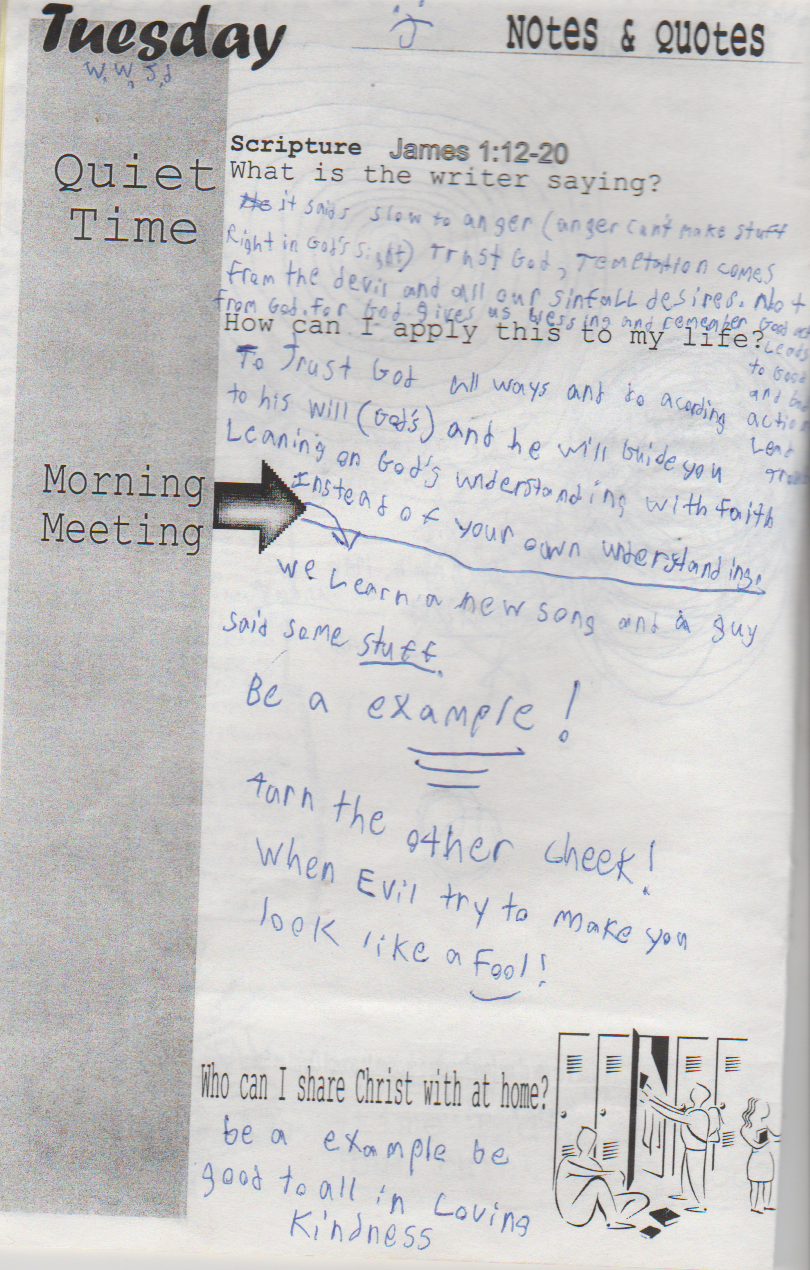 Tuesday
Notes & Quotes
W.W.J.d
Quiet
Time
Scripture James 1:12-20
What is the writer saying?
it saids slow to anger (anger can't make stuff
Right in God's sight) Trust God, Temptation comes
from the devil and all our sinfull desires. Not
from God. for God gives us blessing and remember Good
Leads
to Good
and
action
Lead
How can I apply this to my life?
To Trust God all ways and to acording
to his will (God's) and he will Guide you
Leaning on God's understanding with faith
Instead of your own understanding.
Morning
Meeting
we Learn a new song and a guy
said some stuff.
Be a example!
turn the other cheek!
When Evil try to make you
look like a Fool!
Who can I share Christ with at home?
be a example be
good to all in Loving
Kindness